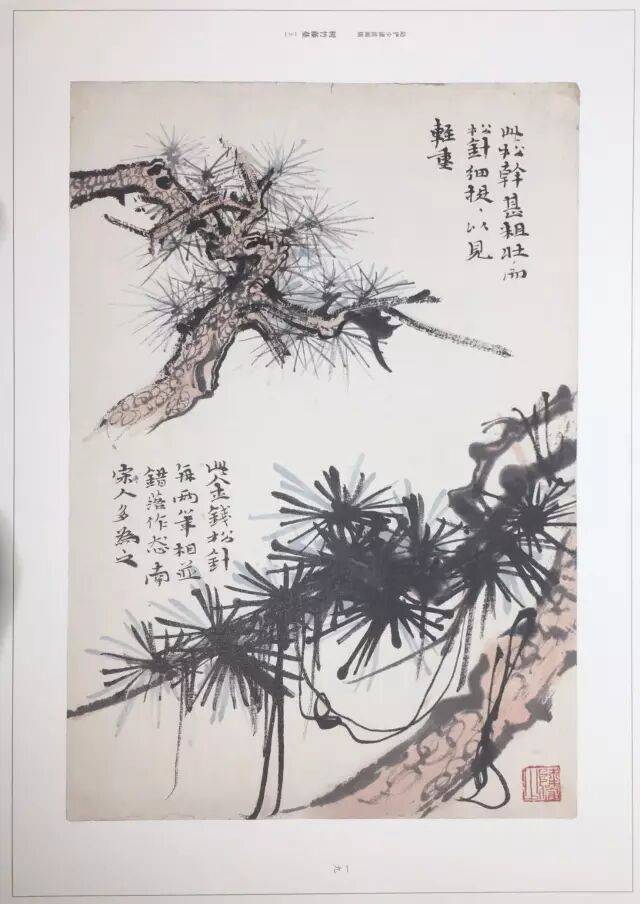 此松幹甚粗壯而
松針細挺、以見
輕重
此金錢松針
每兩筆相並
錯落作態南
宋人多為之
一九